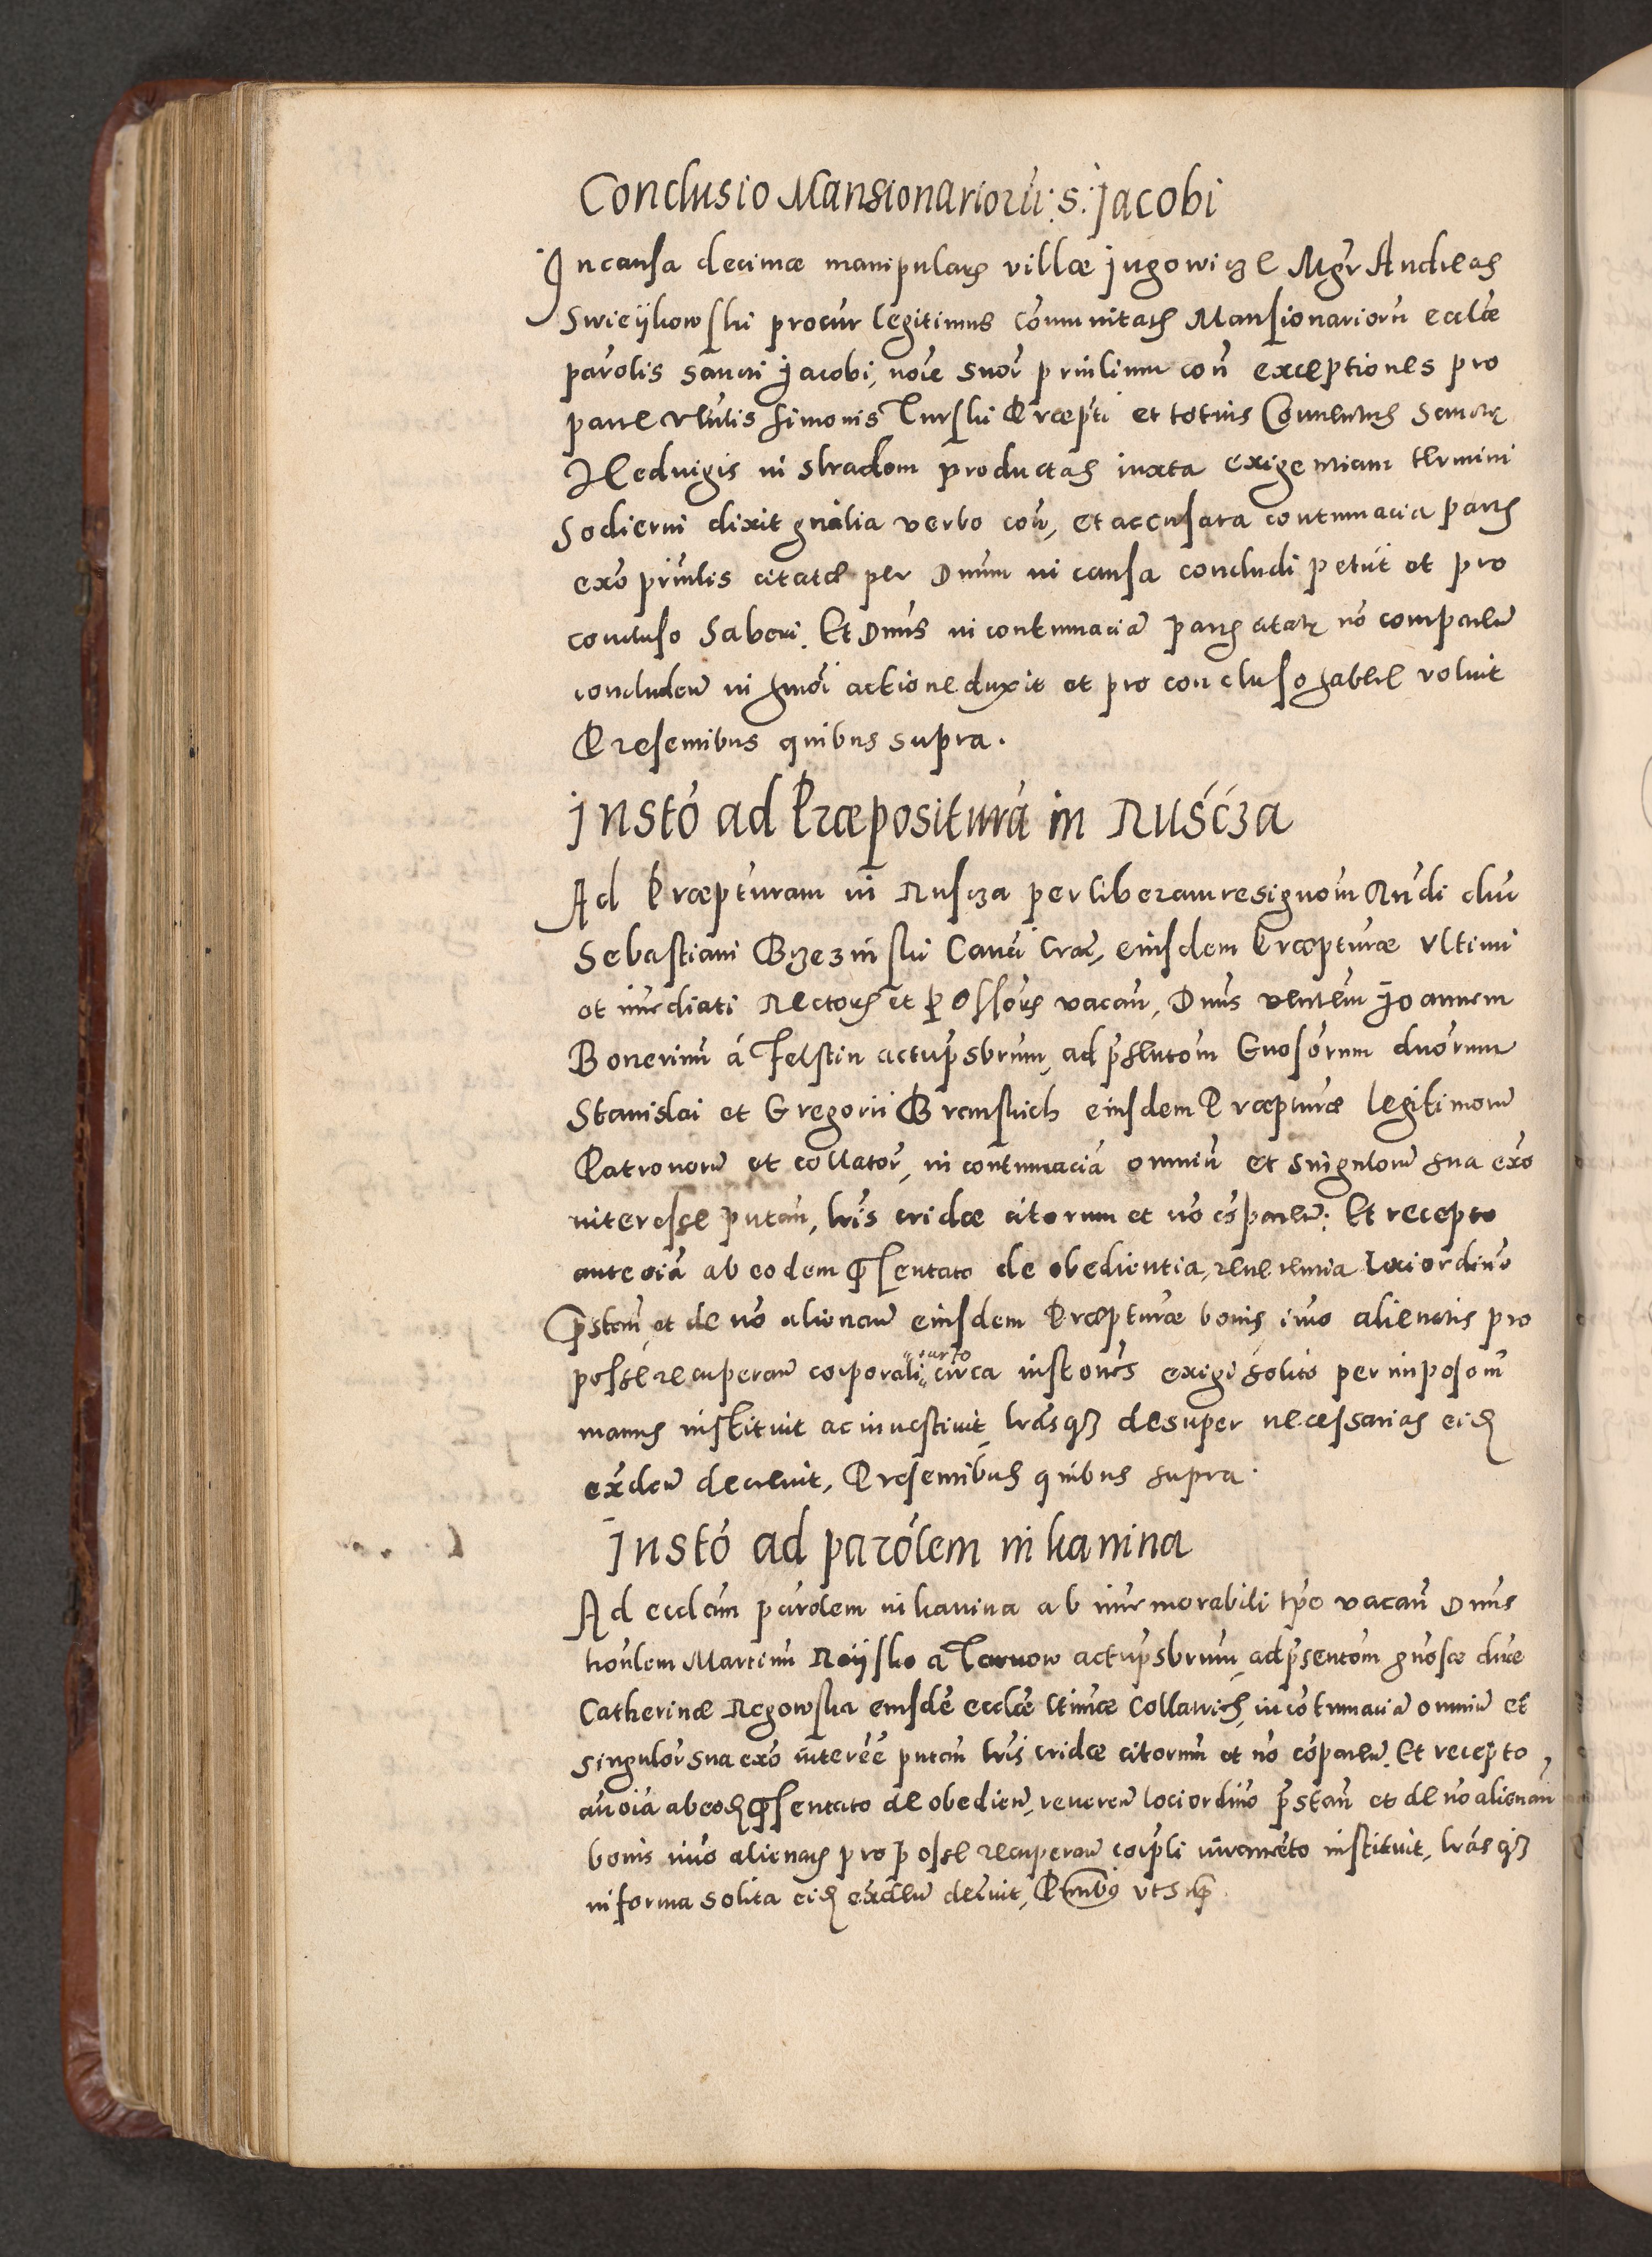 Conclusio Mansionariorũ: S: Jacobi
In causa decimæ manipularis villæ Jugowicze Mgr Andreas
Swieÿkowski procur legitimus cõmunitatis Mansionariorũ eccłæ
parõlis sancti Jacobi, noĩe suor̃ prinlium con̄ exceptiones pro
parte Vłnlis Simonis Turski Præpti et totius Conuentus Sanctæ
Heduigis in stradom productas iuxta exigentiam termini
hodierni dixit gnalia verbo con̄, et accusata contumacia partis
exõ priñlis citatæ per Dnum in causa concludi petiit et pro
concluso haberi. Et Dnus in contumaciã partis citatæ nõ comparen̄
concluden̄ in hm̃oi actione duxit et pro concluso habere voluit
Presentibus quibus supra.
Instõ ad Præpositurã in Rusćza
Ad Præpturam in Ruscza per liberam resignom Rñdi dñi
Sebastiani Brzezinski Canci Crac̃, eiusdem Præpturæ vltimi
et im̃ediati Rectoris et possõris vacan̄, Dnus venłem Joannem
Bonerinũ á Felstin actũ psbrum, ad pñtatõm Gnosorum dnorum
Stanislai et Gregorii Branskich eiusdem Præpturæ legitimorũ
Patronorũ et collator̃, in contumaciã omniũ et singulorũ sua exõ
interesse putan̄, lr̃is cridæ citorum et nõ cõparen̄. Et recepto
ante oĩa ab eodem p̃sentato de obedientia, reuerentia loci ordinõ
p̃stan̄ et de nõ alienan̄ eiusdem Præpturæ bonis, imo alienatis pro
posse recuperan̄ corporali iurto circa instones exigi solito per imposom
manus instituit ac inuestiuit, lr̃asq3 desuper necessarias eid
exdeñ decreuit, Presentibus quibus supra.
Instõ ad parõlem in kanina
Ad eccłam parõlem in kanina ab immemorabili tp̃e vacan̄ Dnus
honlem Martinũ Roÿsko a Tarnow actũ psbrum, ad p̃sentom gnosæ dnæ
Catherinæ Rogowska eiusdẽ eccłæ ltimæ Collatricis, in cõtumaciã omniũ et
singulor̃ sua exõ interẽe putan̄ lr̃is cridæ citorum et nõ cõparen̄. Et recepto
an̄ oĩa ab eod p̃sentato de obedien̄, reueren̄ loci ordinõ p̃stan̄ et de nõ alienan̄
bonis imo alienatis pro posse recuperan̄ corpli iuramẽto instituit, lr̃asq3
in forma solita eid exdeñ decuit, Pñtibus vt sup̃